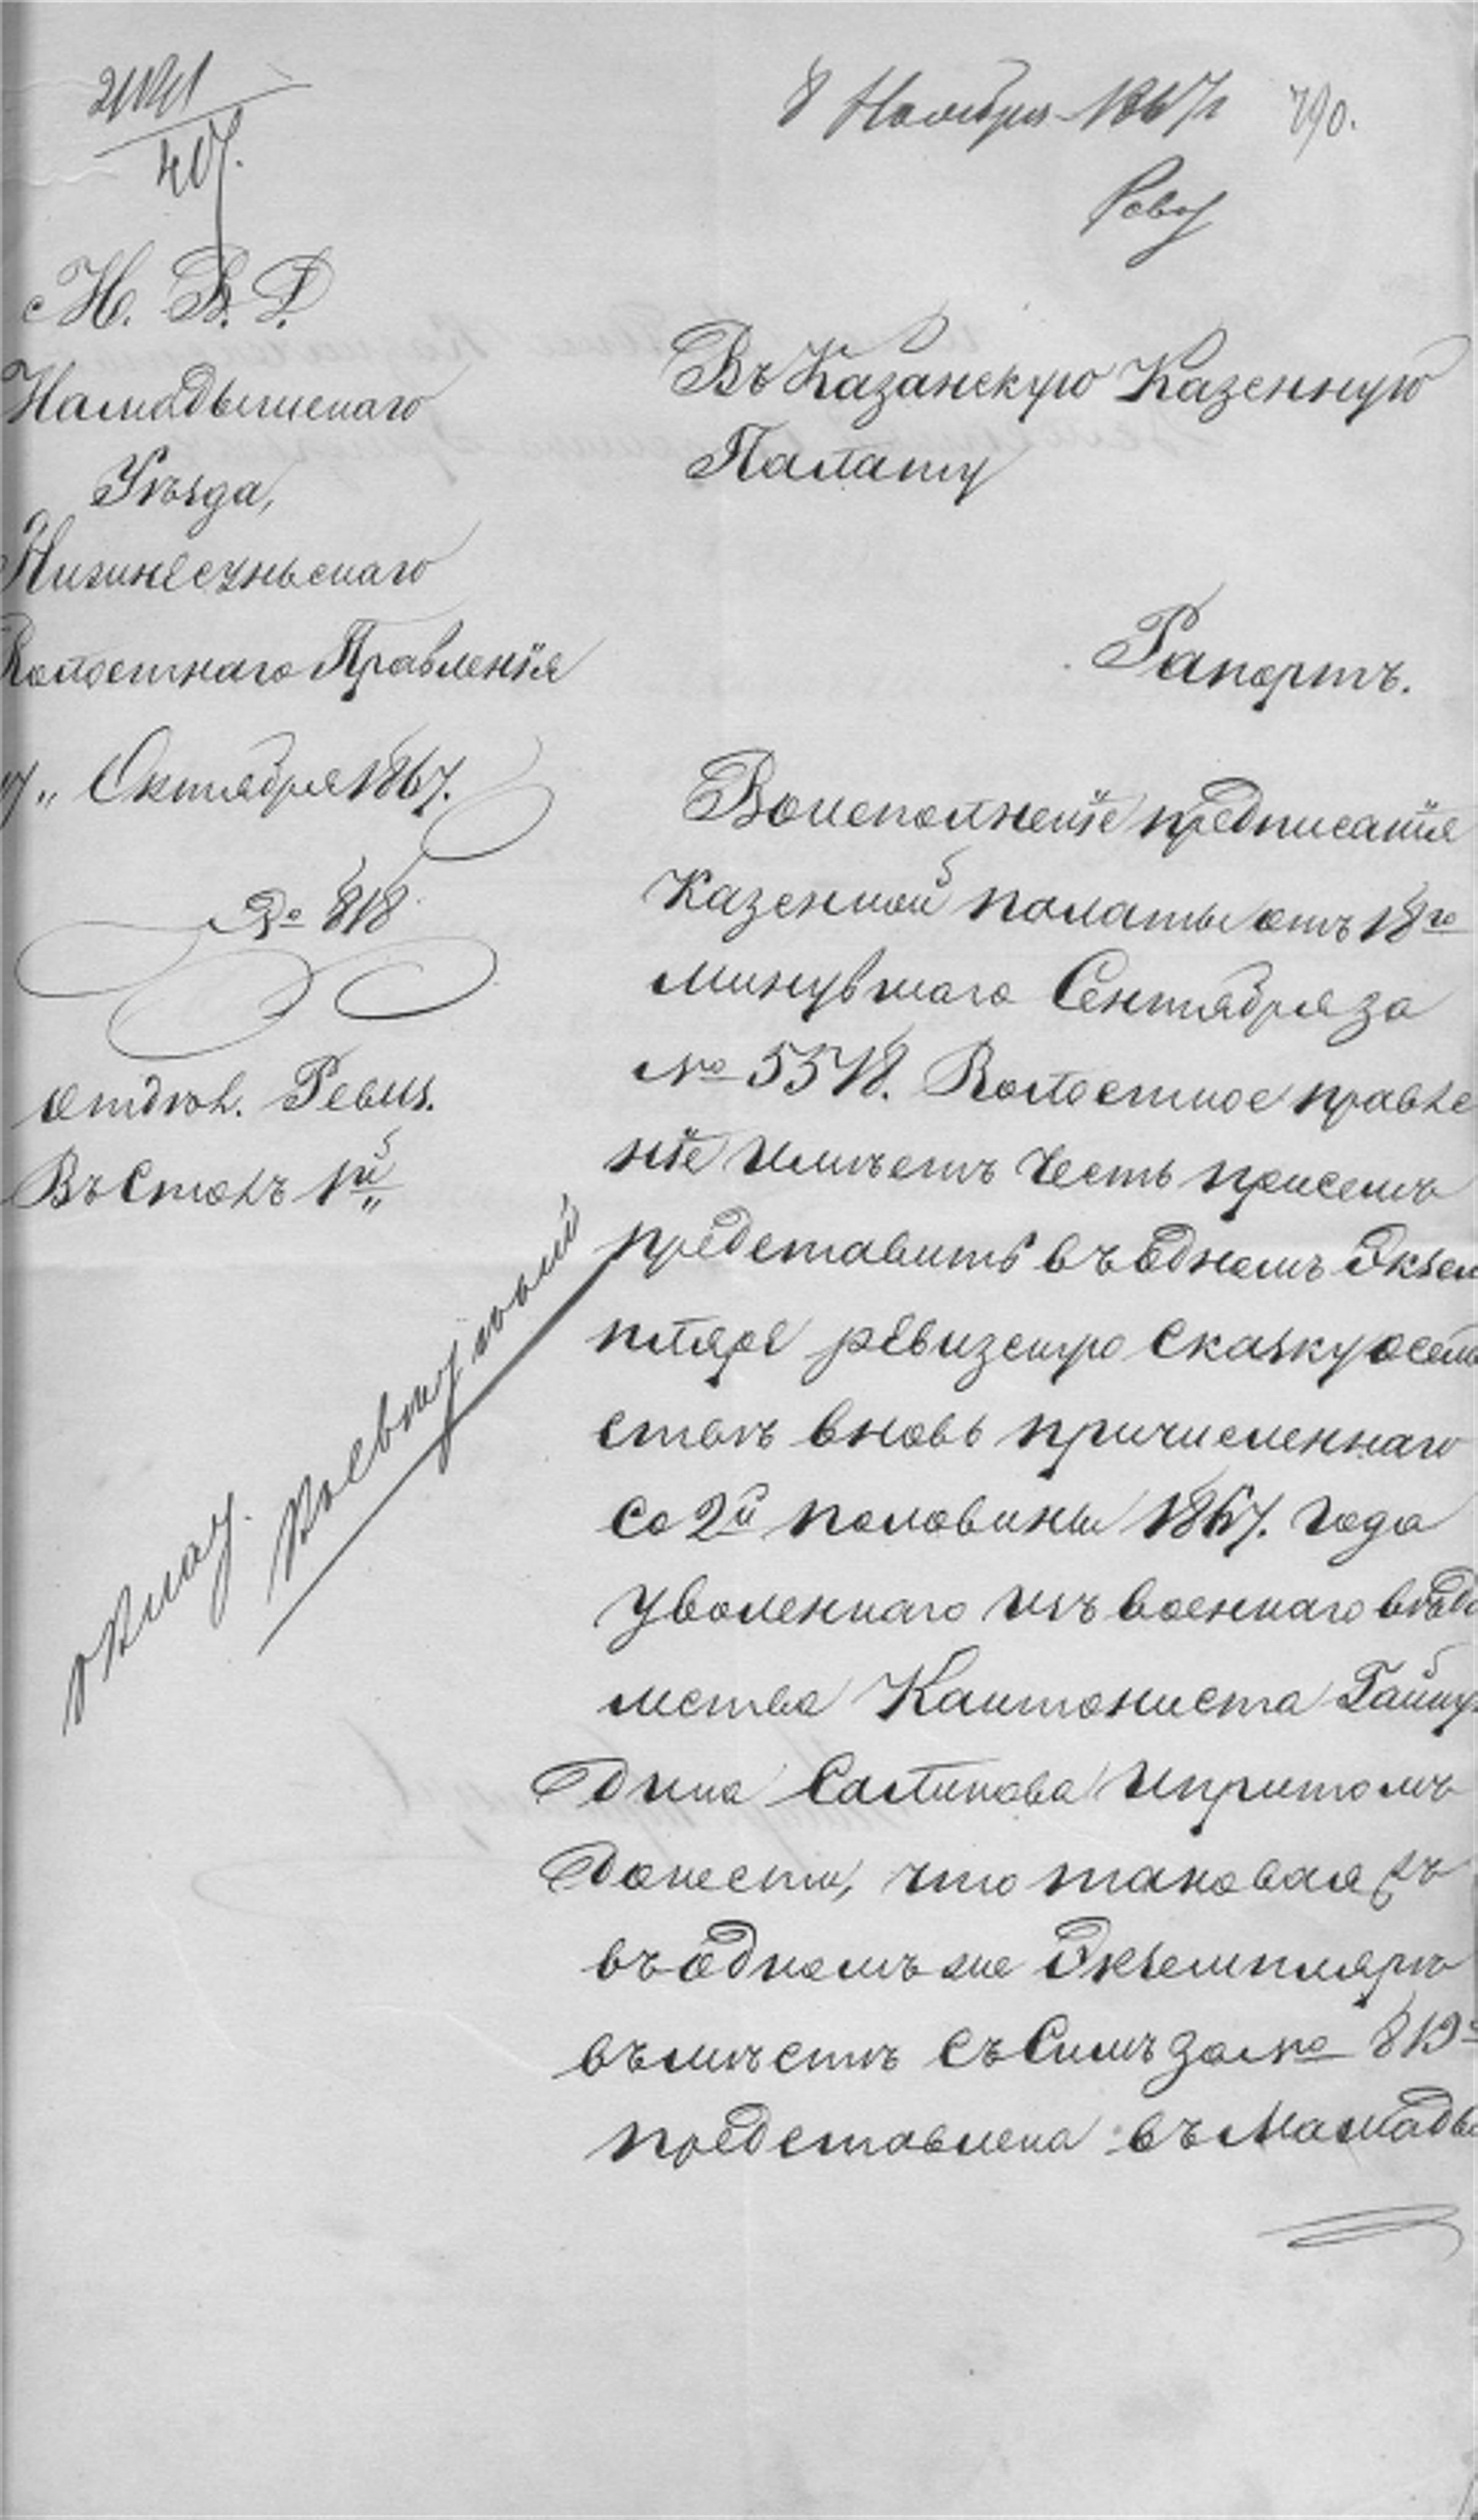 407.
8 Ноября 1867 г
790.
М. В. Д.
Мамадышскаго
Уѣзда,
Нижнесуньскаго
Волостнаго Правленія
„ Октября 1867.
№ 818
Отдѣл. Ревиз.
Въ Столъ 1й
Въ Казанскую Казенную
Палату
Рапортъ.
Воисполненіе предписанія
Казенной палаты отъ 18го
минувшаго Сентября за
№ 5518. Волостное правле
ніе имѣетъ честь присемъ
представить въ одномъ Экзем
пляре ревизскую сказку осем
ствѣ вновь причисленнаго
со 2й половины 1867. года
уволеннаго изъ военнаго вѣдо
мства Кантониста Гайну
дина Салихова и притомъ
донести, что таковая
въ одномъ же Экземплярѣ
въмѣстѣ съ Симъ за № 819
представлена въ Мамады